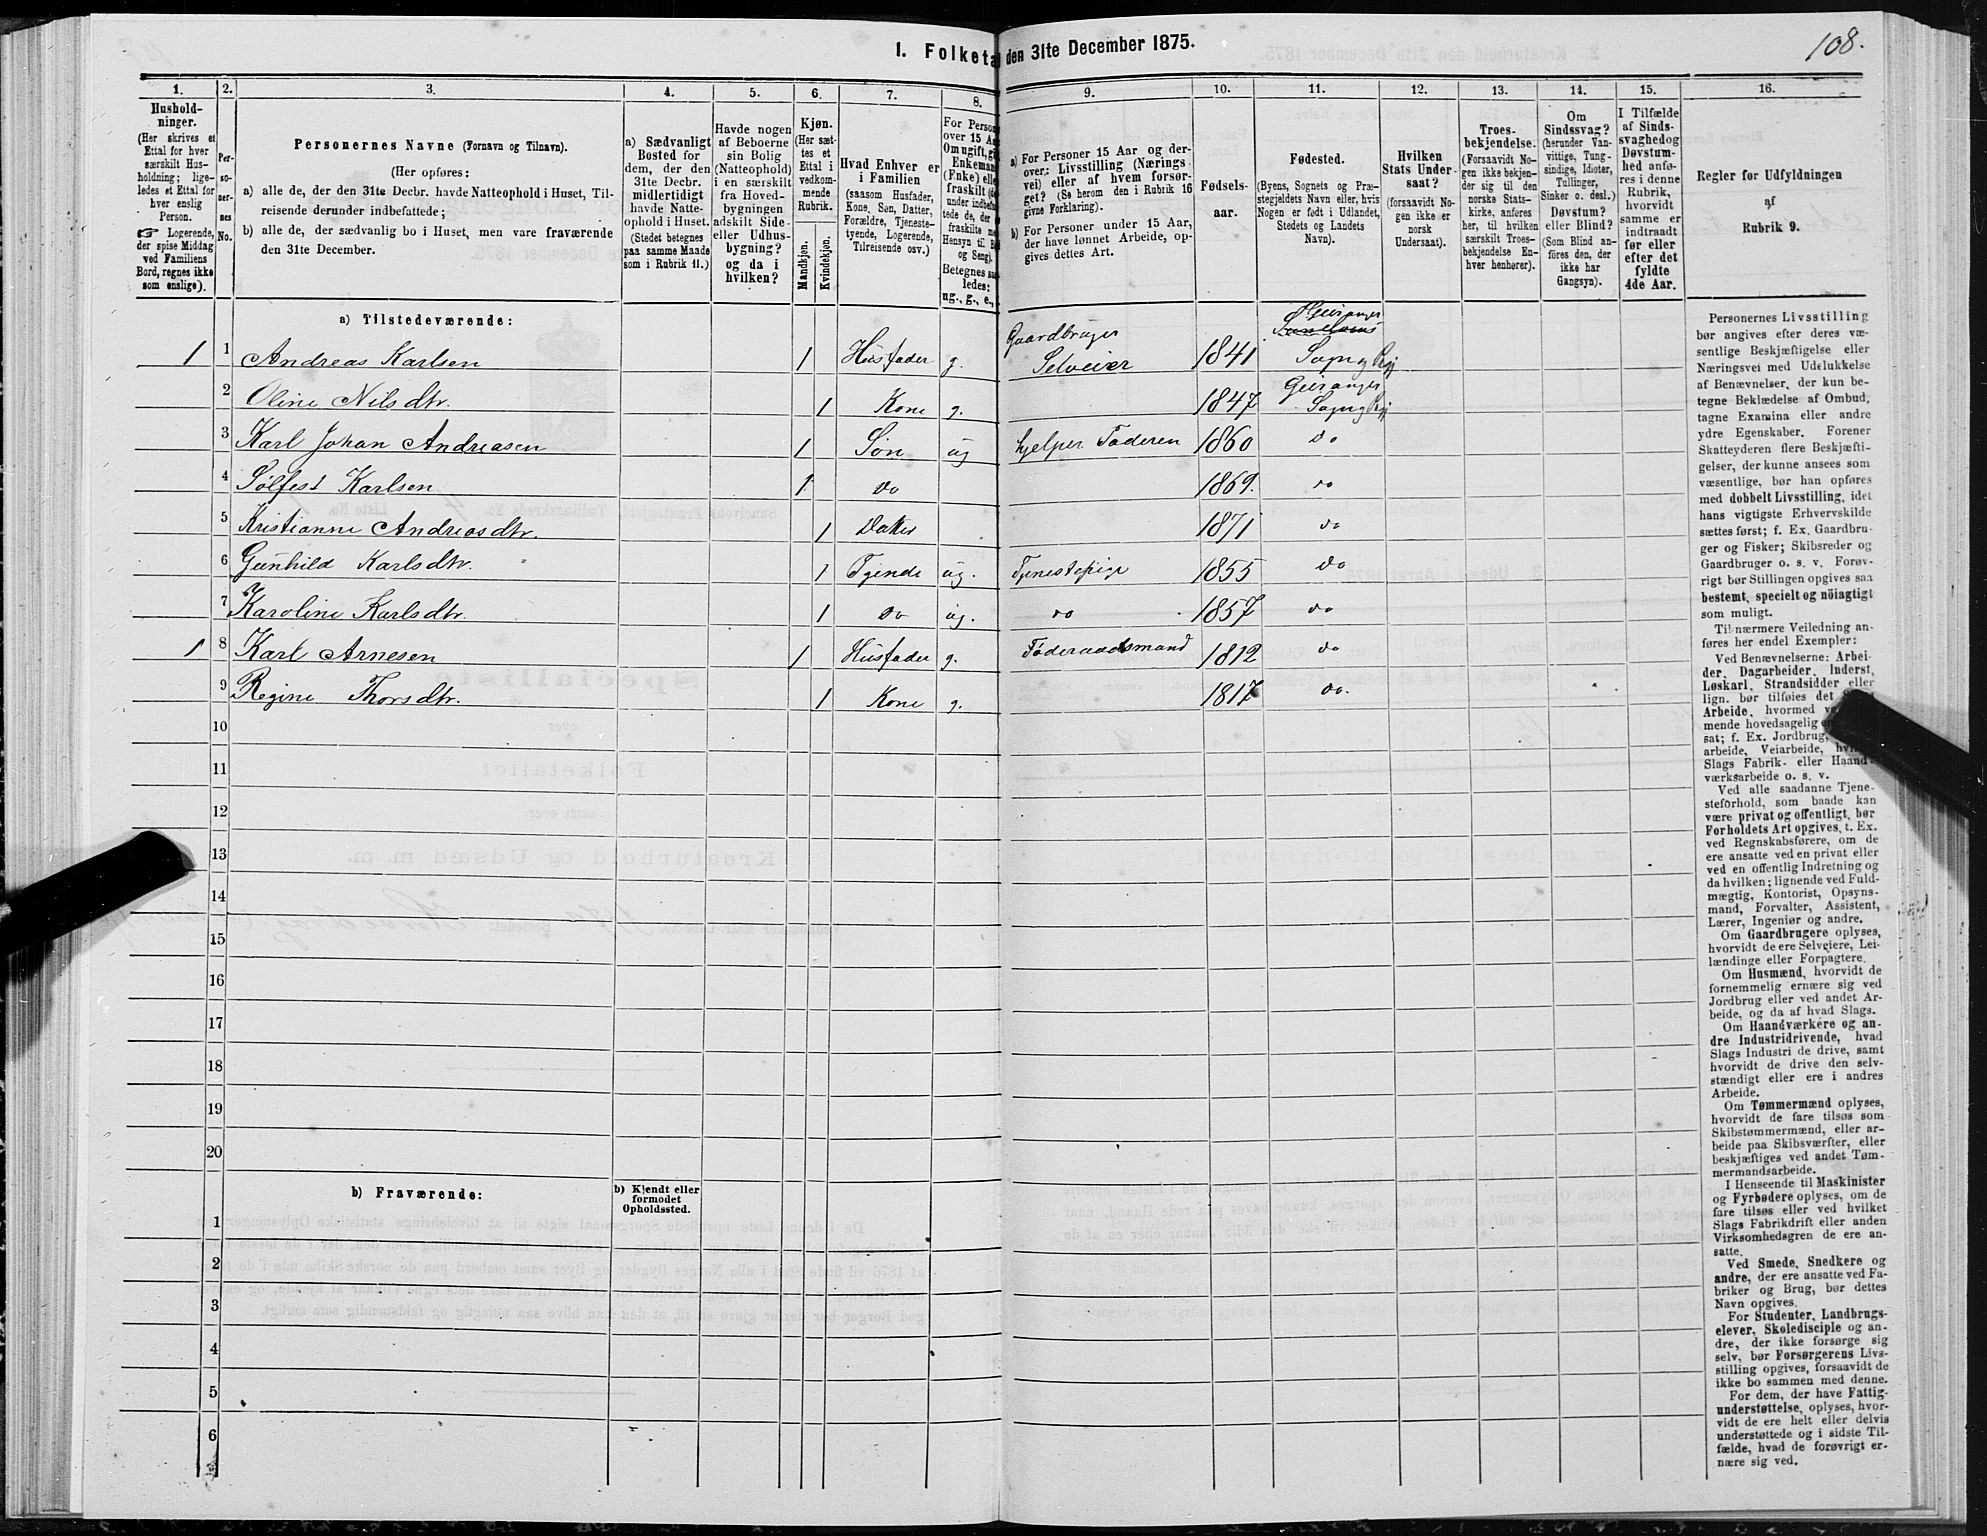 108.
1. Folketa den 31te December 1875.
1. 2. 3. 4. 5. 6. 7. 8. 9. 10. 11. 12. 13. 14. 15. 16.
Hushold-
ninger.
(Her skrives et
Ettal for hver
særskilt Hus-
holdning; lige-
ledes et Ettal for
hver enslig
Person.
☞ Logerende,
der spise Middag
ved Familiens
Bord, regnes ikke
som enslige).
Per-
so-
ner-
nes
No.
Personernes Navne (Fornavn og Tilnavn).
(Her opføres:
a) alle de, der den 31te Decbr. havde Natteophold i Huset, Til-
reisende derunder indbefattede;
b) alle de, der sædvanlig bo i Huset, men vare fraværende
den 31te December.
a) Sædvanligt
Bosted for
dem, der den
31te Decbr.
midlertidigt
havde Natte-
ophold i Huset.
(Stedet betegnes
paa samme Maade
som i Rubrik 11.)
Havde nogen
af Beboerne
sin Bolig
(Natteophold)
i en særskilt
fra Hoved-
bygningen
adskilt Side-
eller Udhus-
bygning?
og da i
hvilken?
Kjøn.
(Her sæt-
tes et
Ettal i
vedkom-
mende
Rubrik.
Mandkjøn.
Kvindekjøn.
Hvad Enhver er
i Familien
(saasom Husfader,
Kone, Søn, Datter,
Forældre, Tjeneste-
tyende, Logerende,
Tilreisende osv.)
For Person
over 15 Aa
Om ugift, gi
Enkeman
(Enke) elle
fraskilt (de
under indbefat-
tede de, der e
fraskilte me
Hensyn til B
og Seng).
Betegnes saa
ledes:
ug., g., e.,
a) For Personer 15 Aar og der-
over: Livsstilling (Nærings-
vei) eller af hvem forsør-
get? (Se herom den i Rubrik 16
givne Forklaring).
b) For Personer under 15 Aar,
der have lønnet Arbeide, op-
gives dettes Art.
Fødsels-
aar.
Fødested.
(Byens, Sognets og Præ-
stegjeldets Navn eller, hvis
Nogen er født i Udlandet,
Stedets og Landets
Navn).
Hvilken
Stats Under-
saat?
(forsaavidt No-
gen ikke er
norsk
Undersaat).
Troes-
bekjendelse.
(Forsaavidt No-
gen ikke bekjen-
der sig til den
norske Stats-
kirke, anføres
her, til hvilken
særskilt Troes-
bekjendelse En-
hver henhører).
Om
Sindssvag?
(herunder Van-
vittige, Tung-
sindige, Idioter,
Tullinger,
Sinker o. desl.)
Døvstum?
eller Blind?
(Som Blind an-
føres den, der
ikke har
Gangsyn).
I Tilfælde
af Sinds-
svaghed og
Døvstum-
hed anfø-
res i denne
Rubrik,
hvorvidt
samme er
indtraadt
før eller
efter det
fyldte
4de Aar.
Regler for Udfyldningen
af
Rubrik 9.
a) Tilstedeværende:
1 1 Andreas Karlsen 1 Husfader g. Gaardbruger Selveier 1841 Geiranger Sunelvens Sogn og Pgj
2 Oline Nilsdtr. 1 Kone g. 1847 Geiranger Sogn og Pgj
3 Karl Johan Andreasen 1 Søn ug hjelper Faderen 1860 do
4 Sølfest Karlsen 1 do 1869. do
5 Kristianne Andreasdtr. 1 Datter 1871 do
6 Gunhild Karlsdtr. 1 Tjende ug. Tjenestepige 1855 do
7 Karoline Karlsdtr. 1 do ug. do 1857 do
1 8 Karl Arnesen 1 Husfader g. Føderaadsmand 1812 do
9 Regine Thorsdtr. 1 Kone g. 1817 do.
10
11
12
13
14
15
16
17
18
19
20
b) Fraværende:
b) Kjendt eller
formodet
Opholdssted.
1
2
3
4
5
6
Personernes Livsstilling
bør angives efter deres væ-
sentlige Beskjæftigelse eller
Næringsvei med Udelukkelse
af Benævnelser, der kun be-
tegne Beklædelse af Ombud,
tagne Examina eller andre
ydre Egenskaber. Forener
Skatteyderen flere Beskjæfti-
gelser, der kunne ansees som
væsentlige, bør han opføres
med dobbelt Livsstilling, idet
hans vigtigste Erhvervskilde
sættes først; f. Ex. Gaardbru-
ger og Fisker; Skibsreder og
Gaardbruger o. s. v. Forøv-
rigt bør Stillingen opgives saa
bestemt, specielt og nøiagtigt
som muligt.
Til nærmere Veiledning an-
føres her endel Exempler:
Ved Benævnelserne: Arbei-
der, Dagarbeider, Inderst,
Løskarl, Strandsidder eller
lign. bør tilføies det
Arbeide, hvormed
mende hovedsagelig
sat; f. Ex. Jordbrug,
arbeide, Veiarbeide,
Slags Fabrik- eller Haand-
værksarbeide o. s. v.
Ved alle saadanne Tjene-
steforhold, som baade kan
være privat og offentligt, bør
Forholdets Art opgives, t. Ex.
ved Regnskabsførere, om de
ere ansatte ved en privat eller
ved en offentlig Indretning og
da hvilken; lignende ved Fuld-
mægtig, Kontorist, Opsyns-
mand, Forvalter, Assistent,
Lærer, Ingeniør og andre.
Om Gaardbrugere oplyses,
hvorvidt de ere Selveiere, Lei-
lændinge eller Forpagtere.
Om Husmænd, hvorvidt de
fornemmelig ernære sig ved
Jordbrug eller ved andet Ar-
beide, og da af hvad Slags.
Om Haandværkere og an-
dre Industridrivende, hvad
Slags Industri de drive, samt
hvorvidt de drive den selv-
stændigt eller ere i andres
Arbeide.
Om Tømmermænd oplyses,
hvorvidt de fare tilsøs som
Skibstømmermænd, eller ar-
beide paa Skibsværfter, eller
beskjæftiges ved andet Tøm-
mermandsarbeide.
I Henseende til Maskinister
og Fyrbødere oplyses, om de
fare tilsøs eller ved hvilket
Slags Fabrikdrift eller anden
Virksomhedsgren de ere an-
satte.
Ved Smede, Snedkere og
andre, der ere ansatte ved Fa-
briker og Brug, bør dettes
Navn opgives.
For Studenter, Landbrugs-
elever, Skoledisciple og an-
dre, der ikke forsørge sig
selv, bør Forsørgerens Livs-
stilling opgives, forsaavidt de
ikke bo sammen med denne.
For dem, der have Fattig-
understøttelse, oplyses, hvor-
vidt de ere helt eller delvis
understøttede og i sidste Til-
fælde, hvad de forøvrigt er-
nære sig ved.